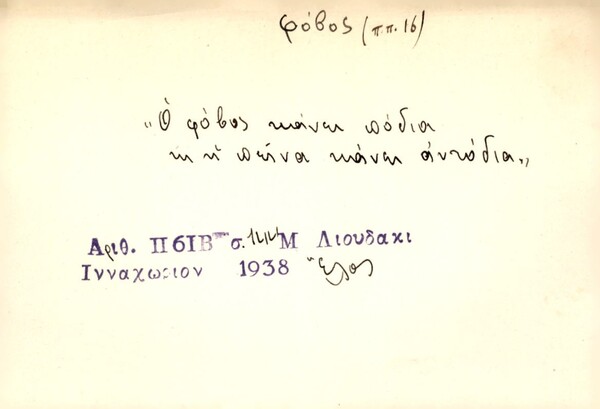 φόβος (π.π. 16)
„Ὁ φόβος κάνει πόδια
κι ἡ πεῖνα κάνει ἀντόδια„
Αριθ. Π61Β σ. Μ Λιουδακι
Ινναχωριον 1938 Ἕλος